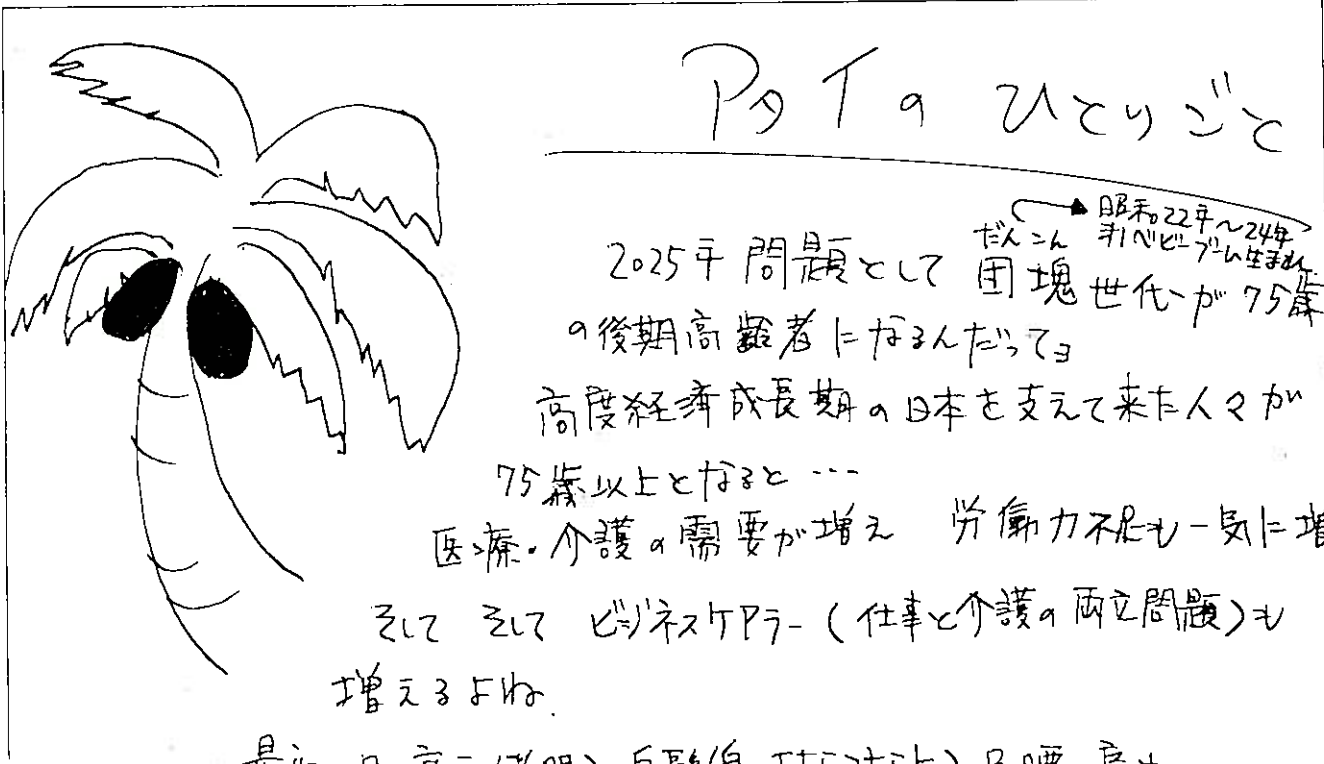 アタイのひとりごと
昭和22年〜24年
オ1ベビーブーム生まれ
だんこん
2025年問題として団塊世代が75歳
の後期高齢者になるんだってョ
高度経済成長期の日本を支えて来た人々が
75歳以上となると…
医療・介護の需要が増え 労働力不足も一気に増
そして そして ビジネスケアラー(仕事と介護の両立問題)も
増えるよね